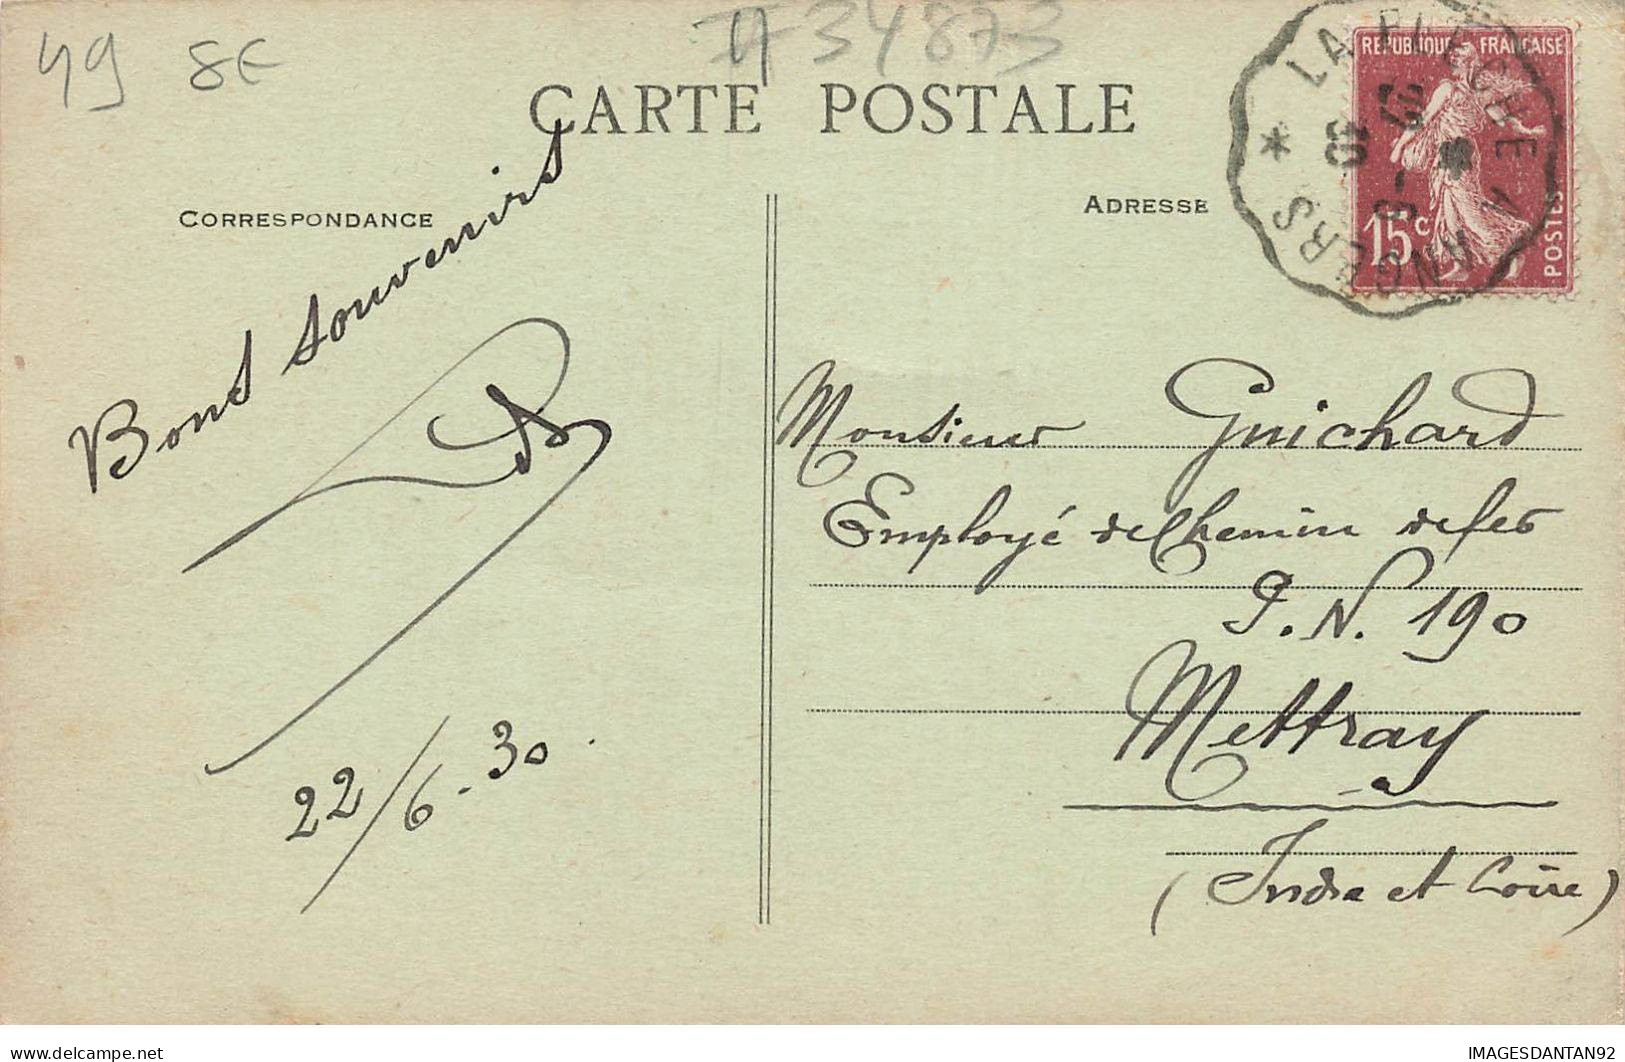 49 8€
#34873
CARTE POSTALE
CORRESPONDANCE
ADRESSE
REPUBLIQUE FRANÇAISE
15c
POSTES
LA FLECHE A ANGERS *
30
Bons souvenirs
22/6-30.
Monsieur Guichard
Employé de Chemin de fer
P.N. 190
Mettray
(Indre et Loire)
IMAGESDANTAN92
delcampe.net